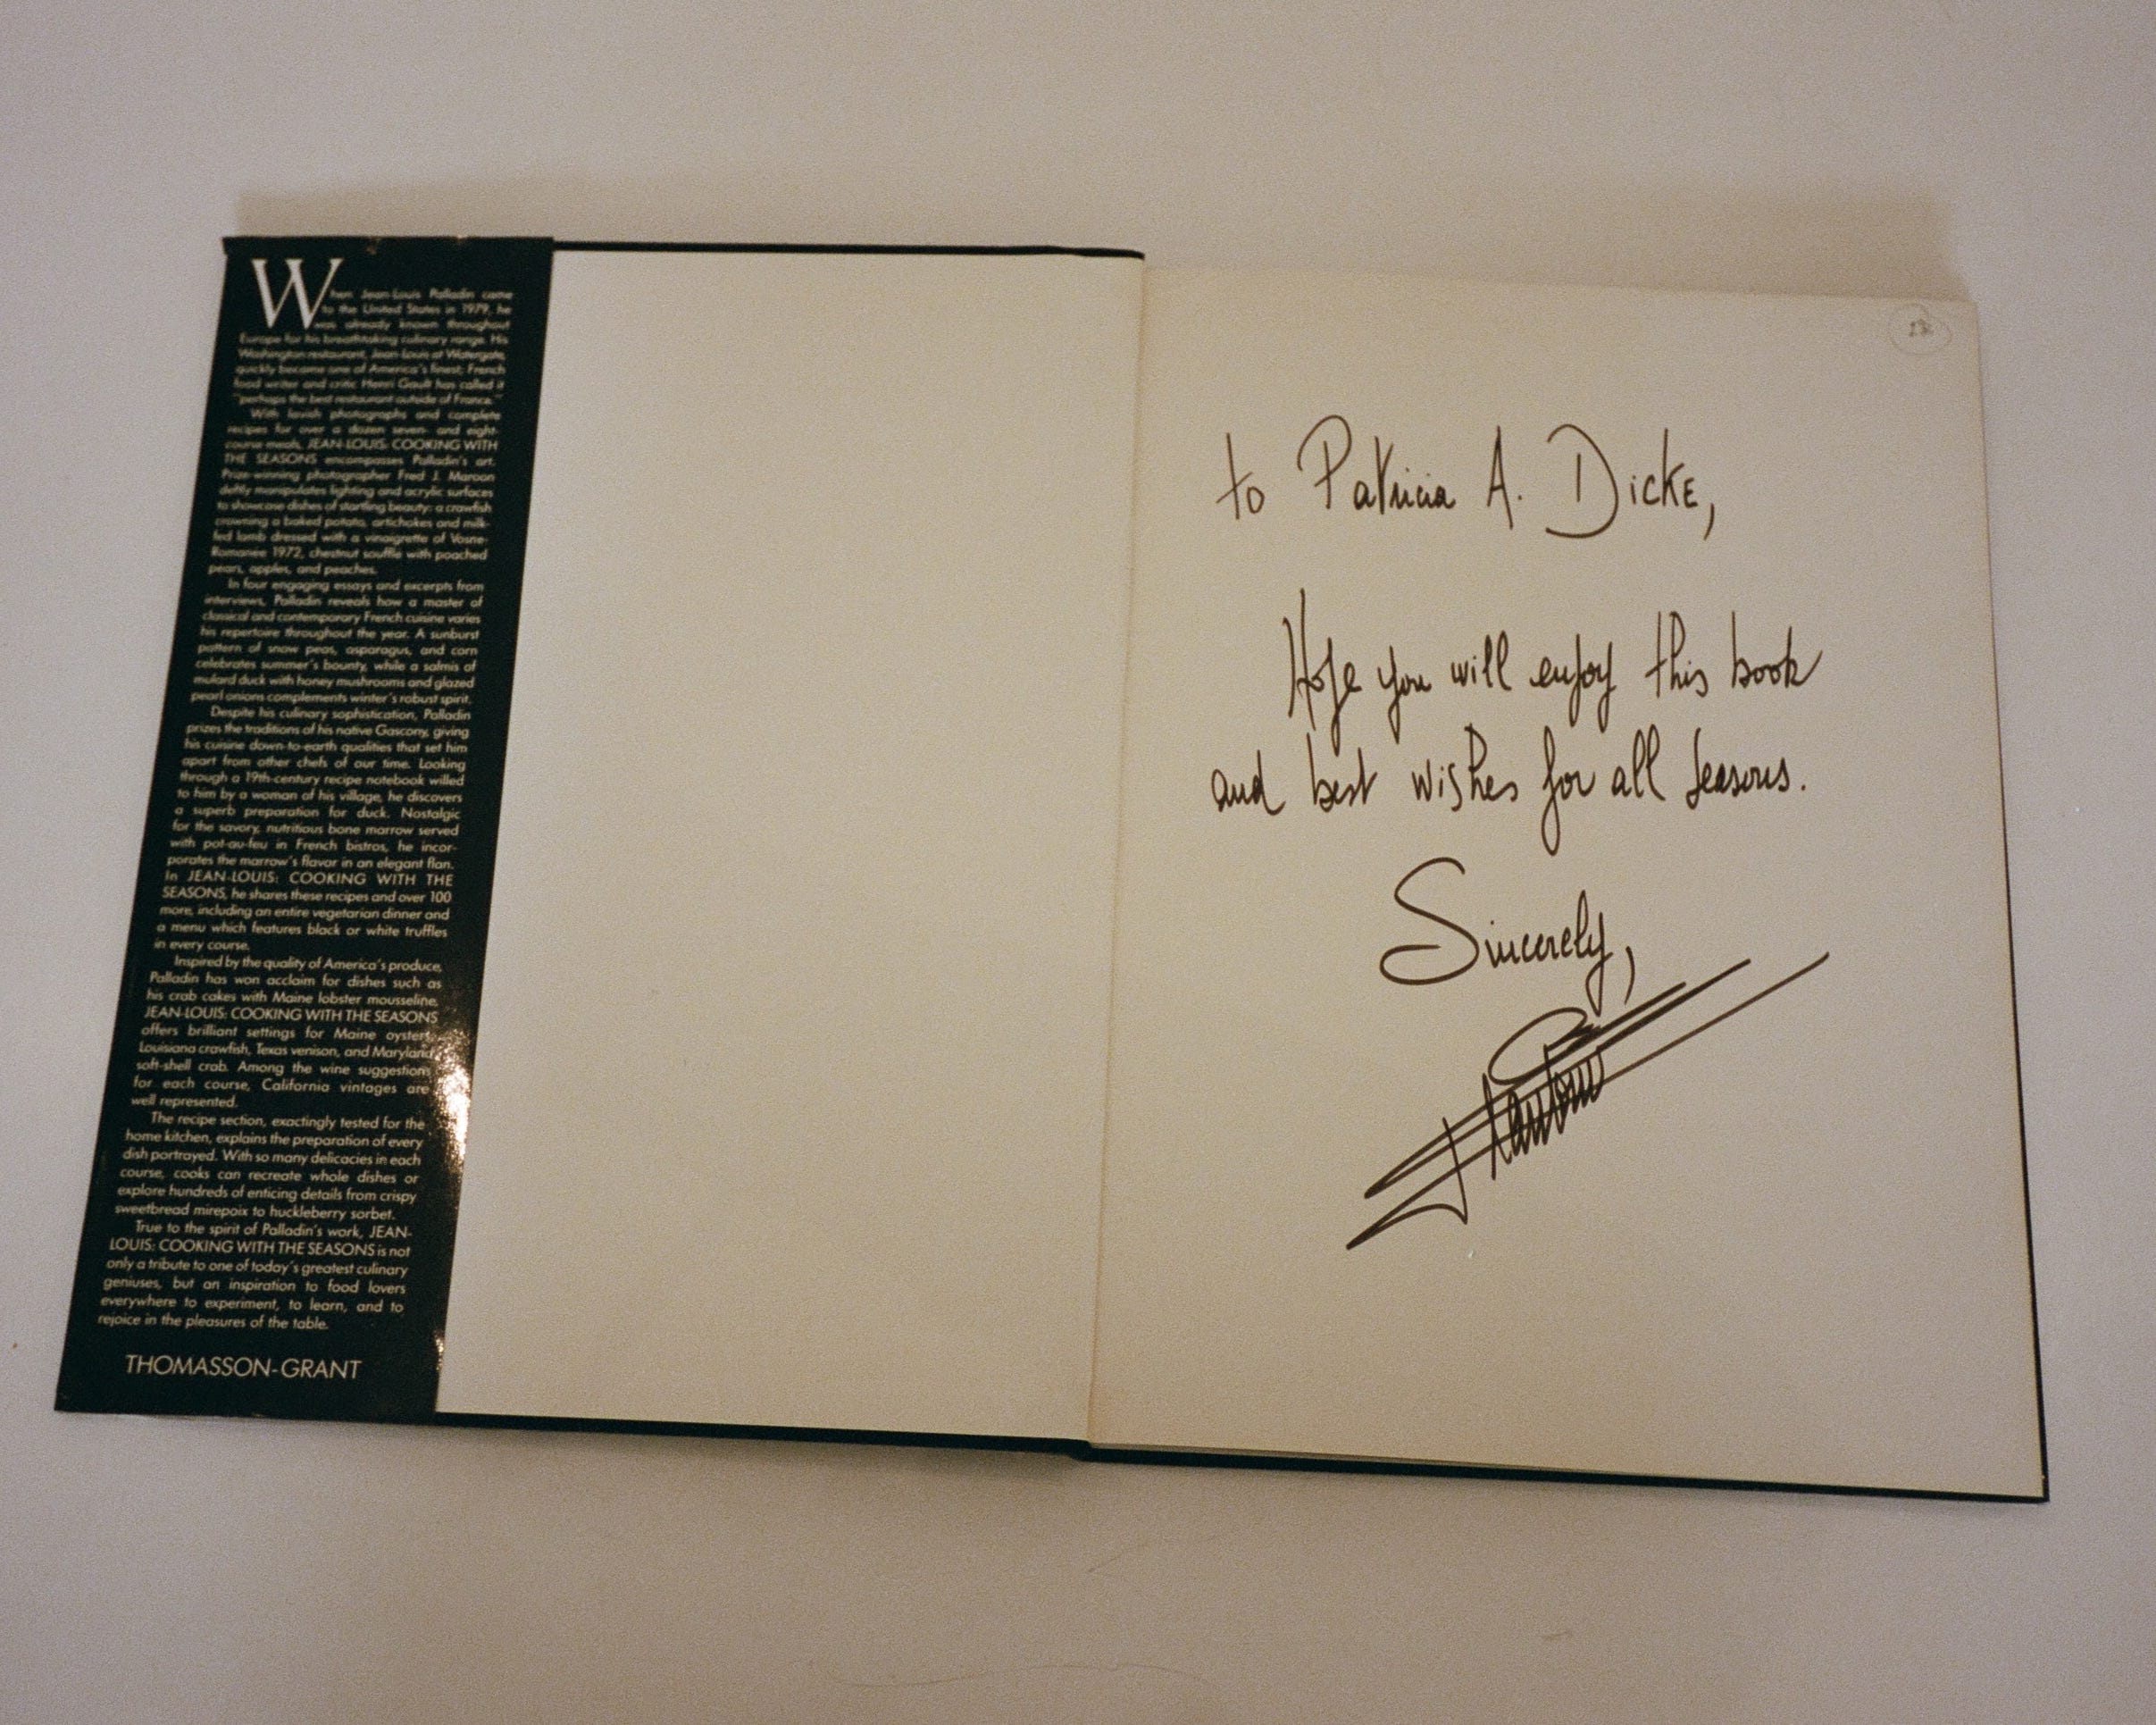 When Jean-Louis Palladin came
to the United States in 1979, he
was already known throughout
Europe for his breathtaking culinary range. His
Washington restaurant, Jean-Louis at Watergate,
quickly became one of America's finest; French
food writer and critic Henri Gault has called it
"perhaps the best restaurant outside of France."
With lavish photographs and complete
recipes for over a dozen seven- and eight-
course meals, JEAN-LOUIS: COOKING WITH
THE SEASONS encompasses Palladin's art.
Prize-winning photographer Fred J. Maroon
deftly manipulates lighting and acrylic surfaces
to showcase dishes of startling beauty: a crawfish
crowning a baked potato, artichokes and milk-
fed lamb dressed with a vinaigrette of Vosne-
Romanée 1972, chestnut soufflé with poached
pears, apples, and peaches.
In four engaging essays and excerpts from
interviews, Palladin reveals how a master of
classical and contemporary French cuisine varies
his repertoire throughout the year. A sunburst
pattern of snow peas, asparagus, and corn
celebrates summer's bounty, while a salmis of
mulard duck with honey mushrooms and glazed
pearl onions complements winter's robust spirit.
Despite his culinary sophistication, Palladin
prizes the traditions of his native Gascony, giving
his cuisine down-to-earth qualities that set him
apart from other chefs of our time. Looking
through a 19th-century recipe notebook willed
to him by a woman of his village, he discovers
a superb preparation for duck. Nostalgic
for the savory, nutritious bone marrow served
with pot-au-feu in French bistros, he incor-
porates the marrow's flavor in an elegant flan.
In JEAN-LOUIS: COOKING WITH THE
SEASONS, he shares these recipes and over 100
more, including an entire vegetarian dinner and
a menu which features black or white truffles
in every course.
Inspired by the quality of America's produce,
Palladin has won acclaim for dishes such as
his crab cakes with Maine lobster mousseline.
JEAN-LOUIS: COOKING WITH THE SEASONS
offers brilliant settings for Maine oysters,
Louisiana crawfish, Texas venison, and Maryland
soft-shell crab. Among the wine suggestions
for each course, California vintages are
well represented.
The recipe section, exactingly tested for the
home kitchen, explains the preparation of every
dish portrayed. With so many delicacies in each
course, cooks can recreate whole dishes or
explore hundreds of enticing details from crispy
sweetbread mirepoix to huckleberry sorbet.
True to the spirit of Palladin's work, JEAN-
LOUIS: COOKING WITH THE SEASONS is not
only a tribute to one of today's greatest culinary
geniuses, but an inspiration to food lovers
everywhere to experiment, to learn, and to
rejoice in the pleasures of the table.
THOMASSON-GRANT
to Patricia A. Dicke,
Hope you will enjoy this book
and best wishes for all seasons.
Sincerely,